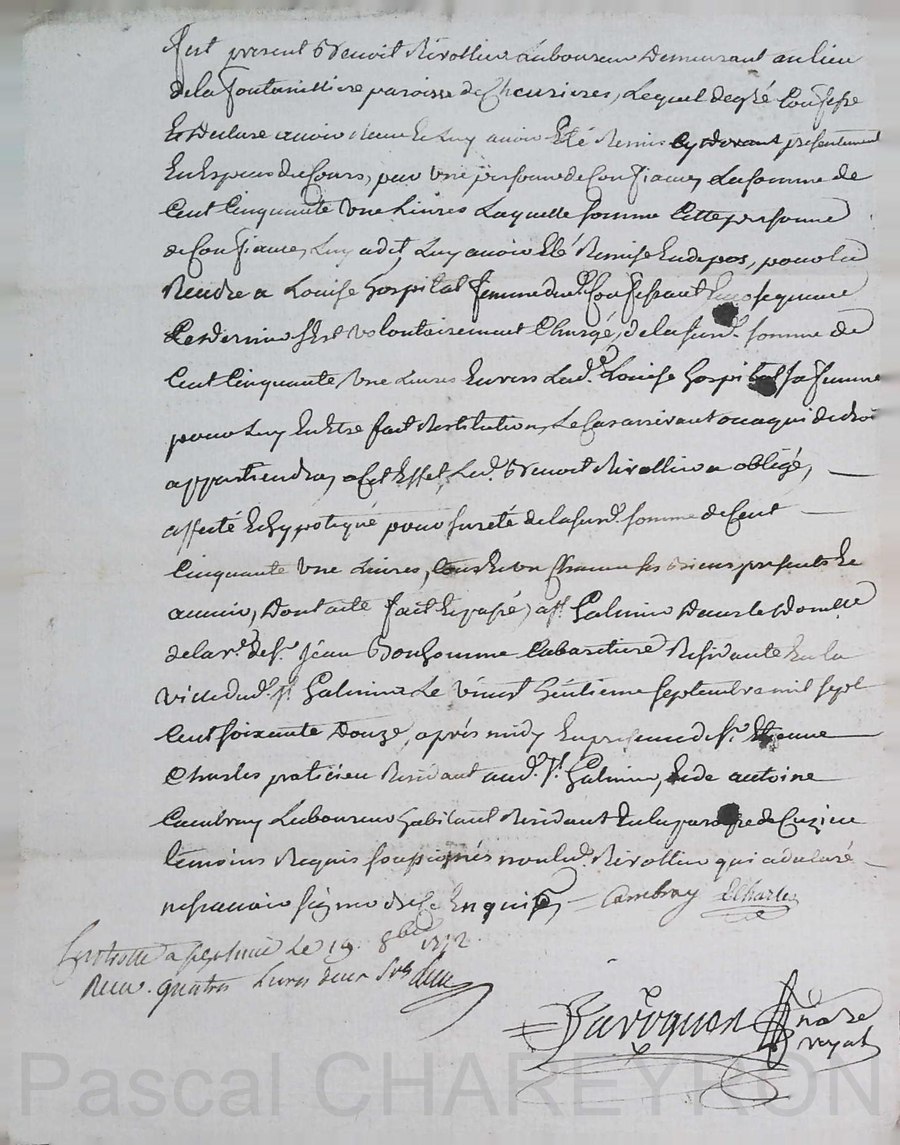 fut présent Benoit Rivollier Laboureur Demeurant au lieu
de la fontanilliere paroisse de Chevrieres, Lequel de gré Confesse
Et Declare avoir Et luy avoir Eté Remis Cydevant présentement
En Especes du Cours, par une personne de Confiance, La somme de
Cent Cinquante une Livres Laquelle somme Cette personne
de Confiance, Luy a dit, Luy avoir Eté Remise En depos, pour la
Rendre a Louise hospital femme dud. Confessant
Ce dernier s'Est volontairement Chargé, de la susd. somme de
Cent Cinquante une Livres Envers Lad. Louise hospital sa femme
pour Luy En Etre fait Restitution, Le Cas arrivant ou a qui de droit
appartiendra, a Cet Effet, Led. Benoit Rivollier a obligé,
affecté Et hypotequé pour sureté de la susd. somme de Cent
Cinquante une Livres, tous Et un Chacun ses biens presents Et
avenir, Dont acte fait Et passé, a St. Galmier Dans le Domicile
de la ve. de Sr. Jean Bonhomme Cabaretiere Residante En la
ville dud. St. Galmier Le vingt huitieme septembre mil sept
Cent soixante Douze, après midy En presence de Sr. Etienne
Charles praticien Residant aud. St. Galmier, Et de antoine
Cambray Laboureur habitant Residant En la paroisse de Cuzieu
temoins Requis soussignés non led. Rivollier qui a declaré
ne sçavoir signer de Ce Enquis Cambray ECharles
Controllé a St Galmier Le 19 8bre 1772
Reçu quatre Livres deux
Pascal CHAREYRON